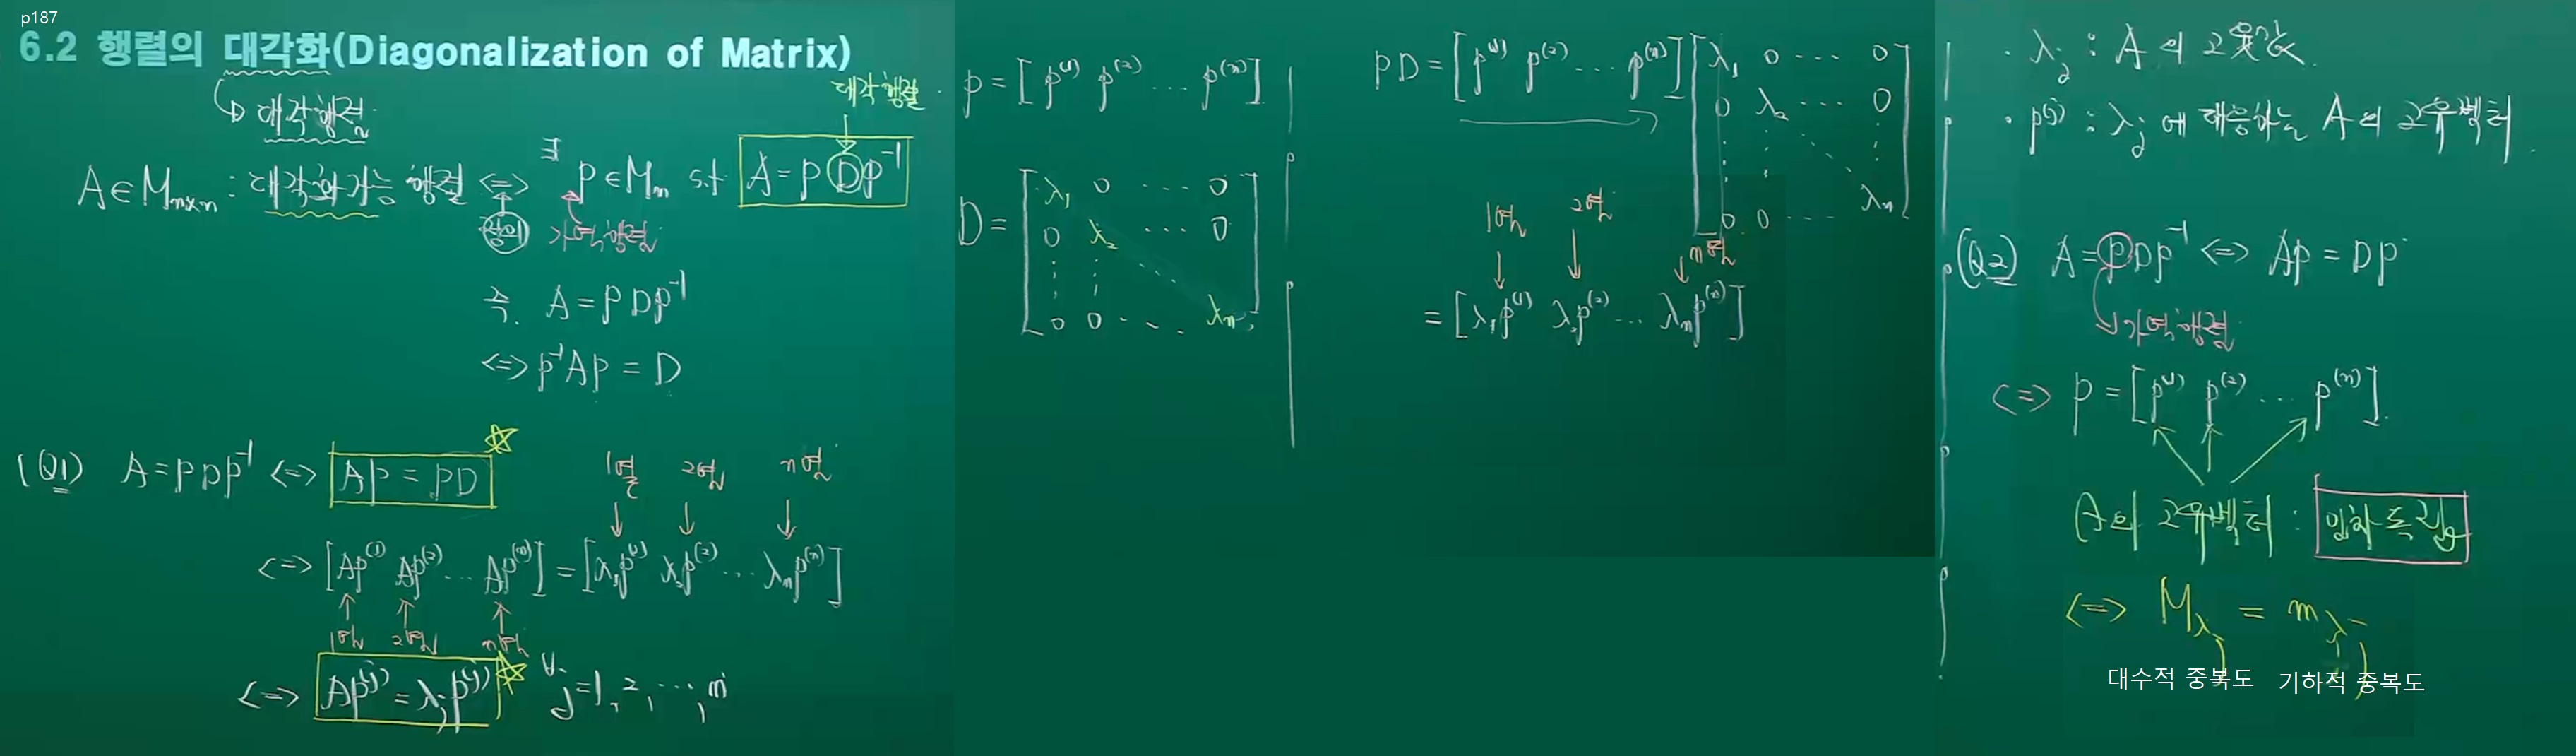 p187
6.2 행렬의 대각화(Diagonalization of Matrix)
대각행렬
대각행렬
A∈Mₙₓₙ : 대각화가능 행렬 <=> ∃ P∈Mₙ s.t A=PDP⁻¹
정의
가역행렬
즉. A=PDP⁻¹
<=> P⁻¹AP = D
(Q1) A=PDP⁻¹ <=> AP = PD
1열 2열 n열
<=> [AP⁽¹⁾ AP⁽²⁾ ... AP⁽ⁿ⁾] = [λ₁P⁽¹⁾ λ₂P⁽²⁾ ... λₙP⁽ⁿ⁾]
1열 2열 n열
<=> AP⁽ʲ⁾ = λⱼP⁽ʲ⁾ ∀j=1, 2, ..., n
P = [P⁽¹⁾ P⁽²⁾ ... P⁽ⁿ⁾]
D = [λ₁ 0 ... 0
0 λ₂ ... 0
⋮ ⋮ ⋱
0 0 ... λₙ]
PD = [P⁽¹⁾ P⁽²⁾ ... P⁽ⁿ⁾] [λ₁ 0 ... 0
0 λ₂ ... 0
⋮ ⋮ ⋱ ⋮
0 0 ... λₙ]
1열 2열 n열
= [λ₁P⁽¹⁾ λ₂P⁽²⁾ ... λₙP⁽ⁿ⁾]
· λⱼ : A의 고윳값.
· P⁽ʲ⁾ : λⱼ에 대응하는 A의 고유벡터.
(Q2) A=PDP⁻¹ <=> AP = DP
가역행렬
<=> P = [P⁽¹⁾ P⁽²⁾ ... P⁽ⁿ⁾].
A의 고유벡터 : 일차독립
<=> M_λⱼ = m_λⱼ
대수적 중복도 기하적 중복도